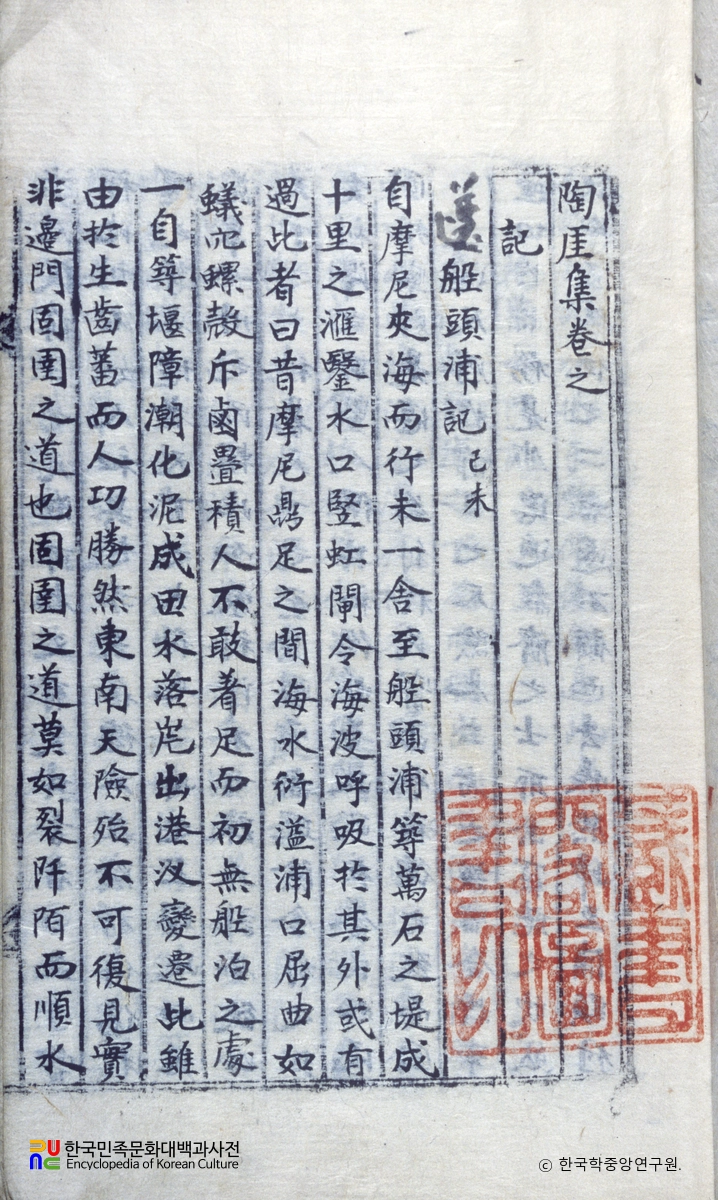 陶厓集卷之
記
選船頭浦記 己未
自摩尼夾海而行未一舍至船頭浦築萬石之堤成
十里之滙鑿水口竪虹閘令海波呼吸於其外或有
過此者曰昔摩尼鼎足之間海水衍溢浦口屈曲如
蟻穴螺殼斥鹵疊積人不敢着足而初無船泊之處
一自築堰障潮化泥成田水落岸出港汊變遷此雖
由於生齒蕃而人功勝然東南天險殆不可復見實
非邊門固圉之道也固圉之道莫如裂阡陌而順水
한국민족문화대백과사전
Encyclopedia of Korean Culture
© 한국학중앙연구원.